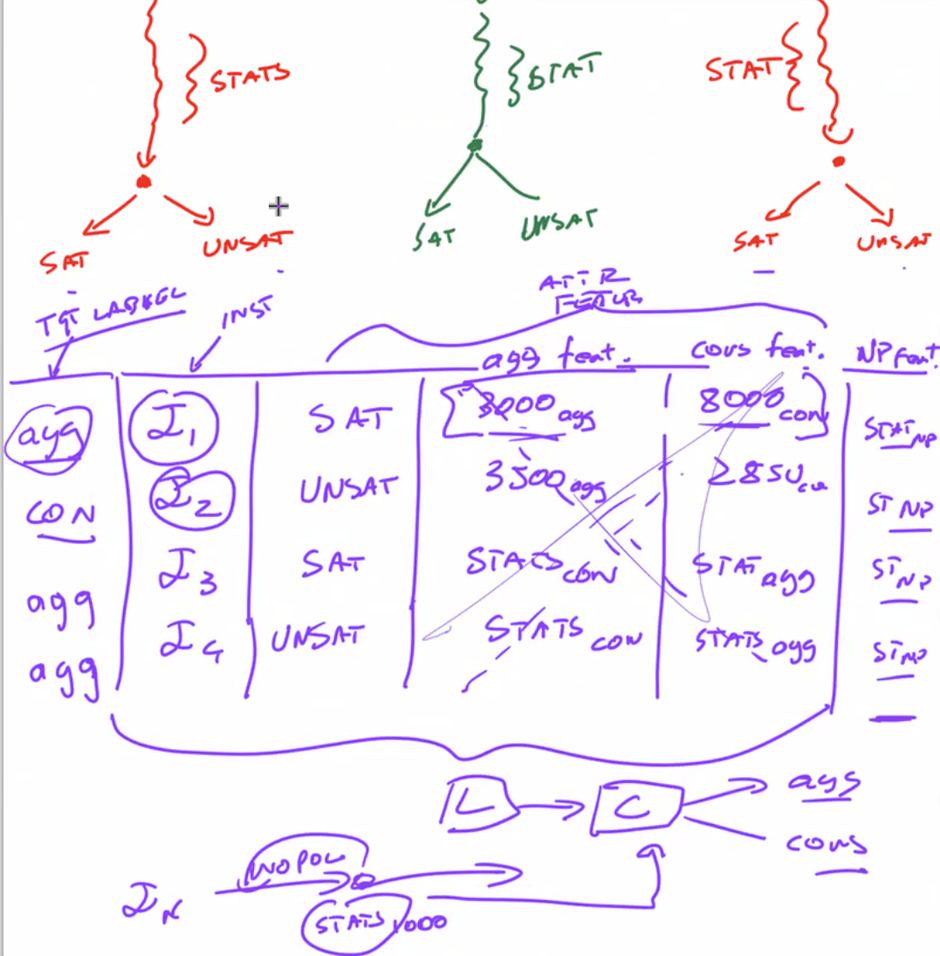 STATS
STAT
STAT
SAT UNSAT
SAT UNSAT
SAT UNSAT
TGT LABGEL
INST
ATTR
FEATUR
agg feat. cons feat. NP feat.
agg I1 SAT 3000 agg 8000 con STAT NP
CON I2 UNSAT 3500 agg 2850 co ST NP
agg I3 SAT STATS CON STAT agg ST NP
agg I4 UNSAT STATS CON STATS agg ST NP
L C agg
cons
NOPOL
IN
STATS 1000